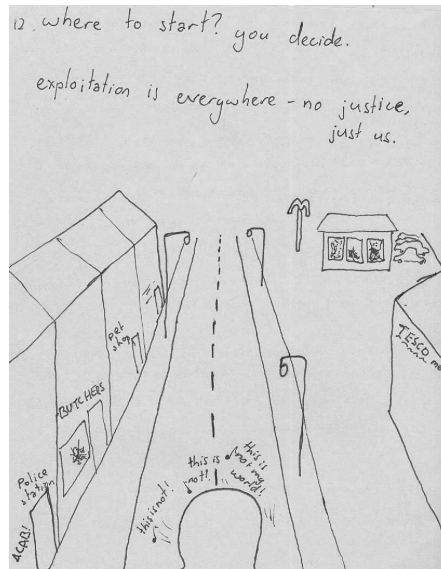 12. where to start? you decide.
exploitation is everywhere - no justice,
just us.
pet
shop
BUTCHERS
Police
station
ACAB!
TESCO
this is not!!
this is
not!
this is
not my
world!